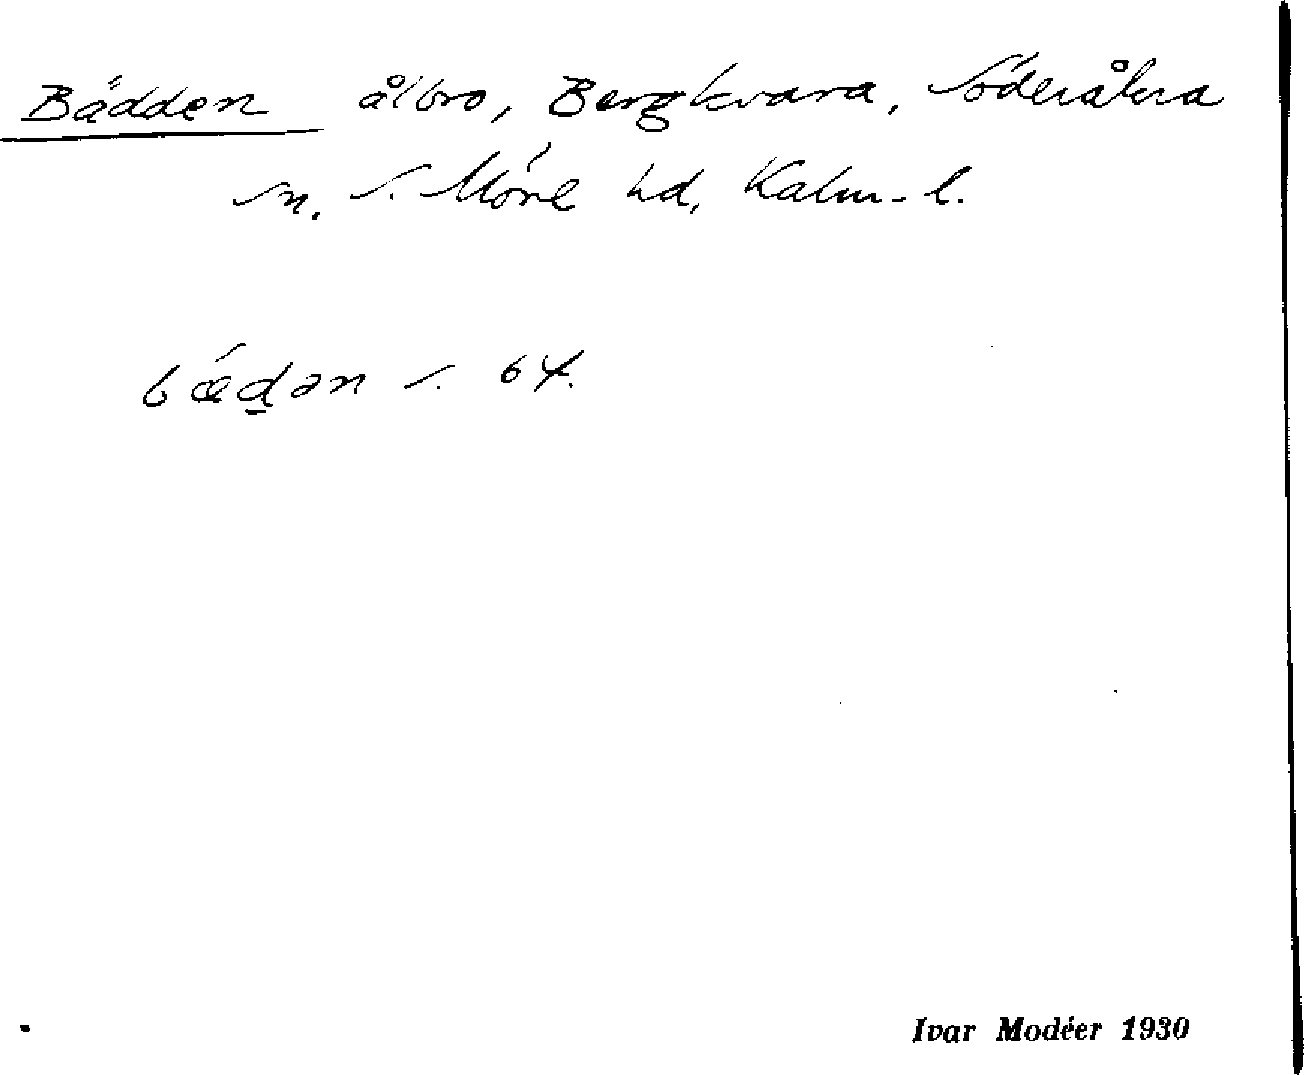 Bädden ålbro, Bergkvara, Söderåkra
sn. S. Möre hd, Kalm. l.
bǽd̲ən s. 64.
Ivar Modéer 1930